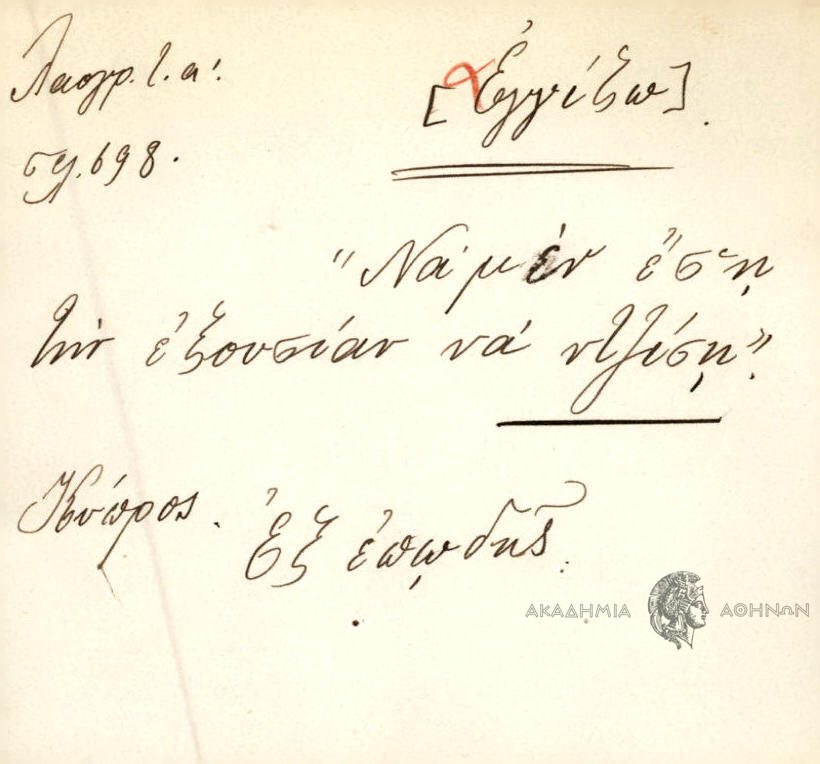 Λαογρ. τ. α'.
[Ἐγγίζω].
σελ. 698.
"Νὰ μὲν ἔσῃ
τὴν ἐξουσίαν νὰ ντζίσῃ".
Κύπρος. Ἐξ ἐπῳδῆς.
ΑΚΑΔΗΜΙΑ ΑΘΗΝΩΝ